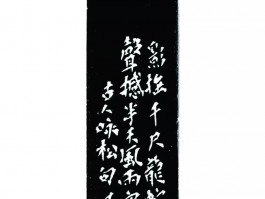 影搖千尺龍
聲撼半天風雨
古人咏松句